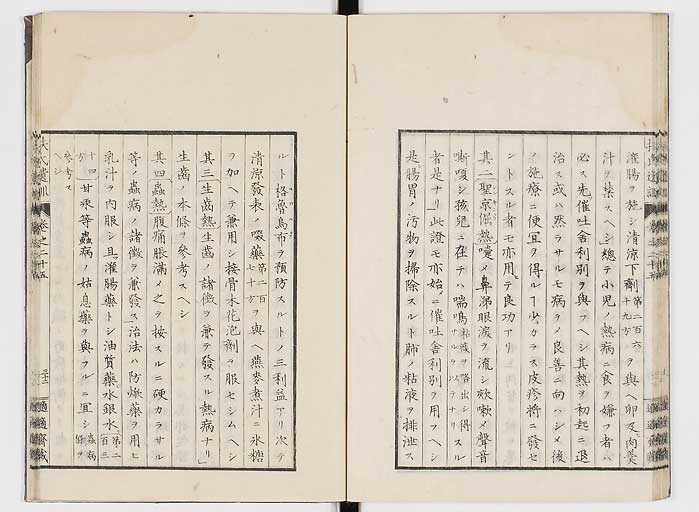 灌腸ヲ施シ清涼下劑第二百六十九方ヲ與ヘ卵及肉羹
汁ヲ禁スヘシ總テ小児ノ熱病ニ食ヲ嫌フ者ハ
必ス先催吐舍利別ヲ與フヘシ其熱ヲ初起ニ退
治ス或ハ然ラサルモ病ヲメ良善ニ向ハシメ後
ノ施療ニ便宜ヲ得ルヿ少カラス皮疹将ニ發セ
ントスル者モ亦用テ良功アリ
其二聖京倔熱嚏メ鼻涕眼淚ヲ流シ欬嗽メ聲音
嘶嗄シ孩児ニ在テハ喘鳴粘痰ヲ咯出シ得サルヲ以テナリスル
者是ナリ此證モ亦始メニ催吐舍利別ヲ用フヘシ
是腸胃ノ汚物ヲ掃除スルト肺ノ粘液ヲ排泄ス
ルト格魯烏布ヲ預防スルトノ三利益アリ次テ
清涼發表ノ啜藥第二百七十方ヲ與ヘ燕麥煮汁ニ氷糖
ヲ加ヘテ兼用シ接骨木花泡劑ヲ服セシムヘシ
其三生齒熱生齒ノ諸徴ヲ兼テ發スル熱病ナリ
生齒ノ本條ヲ參考スヘシ
其四蟲熱腹痛脹滿メ之ヲ按スルニ硬カラサル
等ノ蟲病ノ諸徴ヲ兼發ス治法ハ防焮藥ヲ用ヒ
乳汁ヲ内服シ且灌腸藥トシ油質藥水銀水第二百三
十四方甘汞等蟲病ノ姑息藥ヲ與フルニ宜シ蟲病條ヲ
參考スヘシ
卷之二十五
適適齋藏